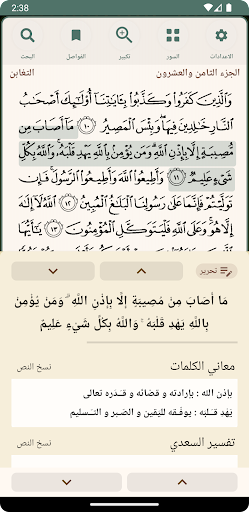 2:38
الاعدادات
السور
تكبير
الفواصل
البحث
الجزء الثامن والعشرون
التغابن
وَٱلَّذِينَ كَفَرُوا۟ وَكَذَّبُوا۟ بِـَٔايَـٰتِنَآ أُو۟لَـٰٓئِكَ أَصْحَـٰبُ
ٱلنَّارِ خَـٰلِدِينَ فِيهَا ۖ وَبِئْسَ ٱلْمَصِيرُ ١٠ مَآ أَصَابَ مِن
مُّصِيبَةٍ إِلَّا بِإِذْنِ ٱللَّهِ ۗ وَمَن يُؤْمِنۢ بِٱللَّهِ يَهْدِ قَلْبَهُۥ ۚ وَٱللَّهُ بِكُلِّ
شَىْءٍ عَلِيمٌ ١١ وَأَطِيعُوا۟ ٱللَّهَ وَأَطِيعُوا۟ ٱلرَّسُولَ ۚ فَإِن
تَوَلَّيْتُمْ فَإِنَّمَا عَلَىٰ رَسُولِنَا ٱلْبَلَـٰغُ ٱلْمُبِينُ ١٢ ٱللَّهُ لَآ إِلَـٰهَ
إِلَّا هُوَ ۚ وَعَلَى ٱللَّهِ فَلْيَتَوَكَّلِ ٱلْمُؤْمِنُونَ ١٣ يَـٰٓأَيُّهَا
تحرير
مَا أَصَابَ مِنْ مُصِيبَةٍ إِلَّا بِإِذْنِ اللَّهِ ۗ وَمَنْ يُؤْمِنْ
بِاللَّهِ يَهْدِ قَلْبَهُ ۚ وَاللَّهُ بِكُلِّ شَيْءٍ عَلِيمٌ
معاني الكلمات
نسخ النص
بإذن الله : بإرادته و قضائه و قدَره تعالى
يَهْدِ قـَـلبَه : يوفـّـقه لليقين و الصّبر و التـّـسليم
تفسير السعدي
نسخ النص